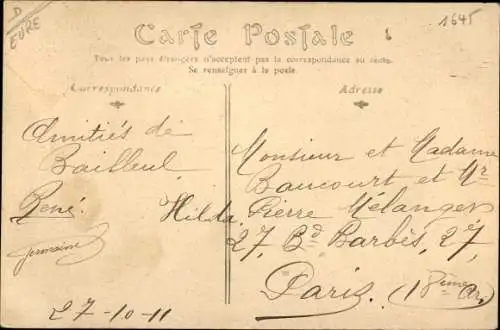 D
EURE
1645
Carte Postale
Tous les pays étrangers n'acceptent pas la correspondance au recto.
Se renseigner à la poste.
Correspondance
Adresse
Amitiés de
Bailleul.
René. Hilda
Germaine
27-10-11
Monsieur et Madame
Baucourt et Mr
Pierre Mélanger
27, Bd Barbès, 27,
Paris. (18ème Ar)